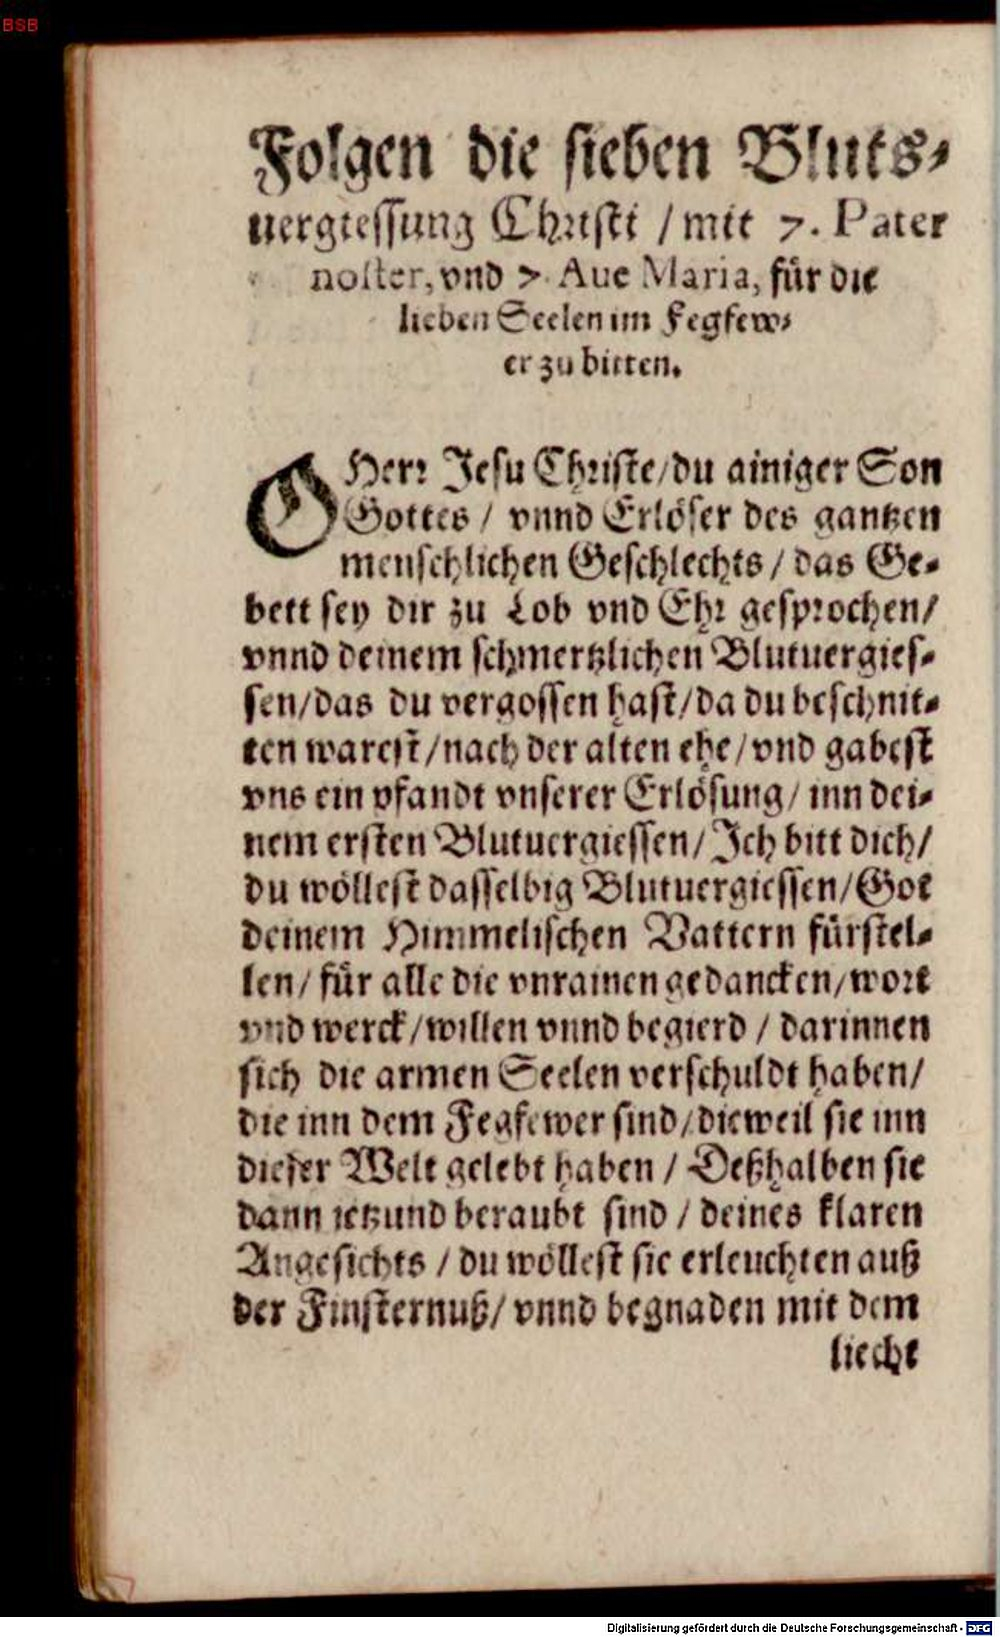 BSB
Folgen die sieben Bluts-
uergiessung Christi / mit 7. Pater
noster, vnd 7. Aue Maria, für die
lieben Seelen im Fegfew-
er zu bitten.
O Herr Jesu Christe/du ainiger Son
Gottes / vnnd Erlöser des gantzen
menschlichen Geschlechts / das Ge-
bett sey dir zu Lob vnd Ehr gesprochen/
vnnd deinem schmertzlichen Blutuergies-
sen/das du vergossen hast/da du beschnit-
ten warest/nach der alten ehe/vnd gabest
vns ein pfandt vnserer Erlösung/ inn dei-
nem ersten Blutuergiessen/Ich bitt dich/
du wöllest dasselbig Blutuergiessen/Got
deinem Himmelischen Vattern fürstel-
len/ für alle die vnrainen gedancken/wort
vnd werck/willen vnnd begierd / darinnen
sich die armen Seelen verschuldt haben/
die inn dem Fegfewer sind/dieweil sie inn
dieser Welt gelebt haben / Deßhalben sie
dann ietzund beraubt sind / deines klaren
Angesichts / du wöllest sie erleuchten auß
der Finsternuß/ vnnd begnaden mit dem
liecht
Digitalisierung gefördert durch die Deutsche Forschungsgemeinschaft - DFG